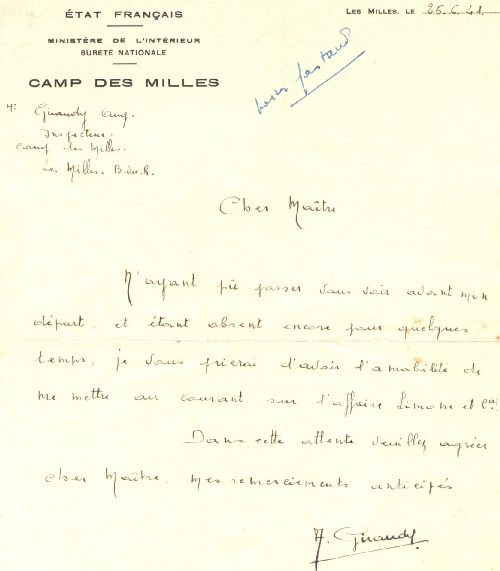 ÉTAT FRANÇAIS
LES MILLES, LE 25.6.41
MINISTÈRE DE L'INTÉRIEUR
SURETÉ NATIONALE
CAMP DES MILLES
Mr Girandy Aug.
Inspecteur.
Camp des Milles.
Les Milles. B.du.R.
Cher Maître
N'ayant pû passer vous voir avant mon
départ, et étant absent encore pour quelques
temps, je vous prierai d'avoir l'amabilité de
me mettre au courant sur l'affaire Limone et Cie.
Dans cette attente veuillez agréer
cher Maître, mes remerciements anticipés
A. Girandy